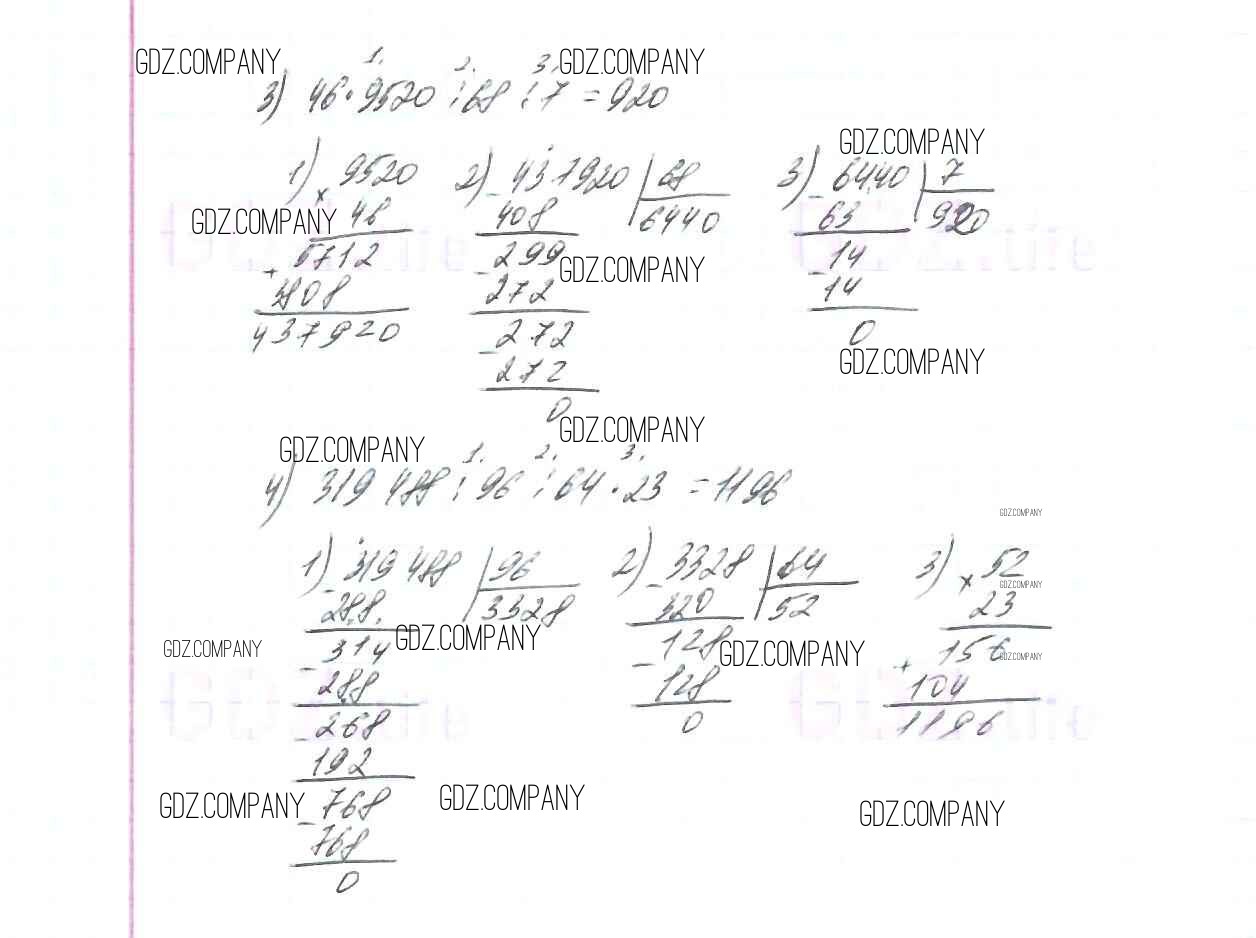 GDZ.COMPANY GDZ.COMPANY
1. 2. 3.
3) 46 · 9520 : 68 : 7 = 920
GDZ.COMPANY
1) × 9520 2) - 437920 | 68 3) - 6440 | 7
46 408 6440 63 920
GDZ.COMPANY
+ 5712 - 299 - 14
GDZ.COMPANY
3808 272 14
437920 - 272 0
GDZ.COMPANY
272
0
GDZ.COMPANY
GDZ.COMPANY
1. 2. 3.
4) 319 488 : 96 : 64 · 23 = 1196
GDZ.COMPANY
1) - 319 488 | 96 2) - 3328 | 64 3) × 52
GDZ.COMPANY
288 3328 320 52 23
GDZ.COMPANY GDZ.COMPANY GDZ.COMPANY GDZ.COMPANY
- 314 - 128 + 156
288 128 104
- 268 0 1196
192
GDZ.COMPANY GDZ.COMPANY GDZ.COMPANY
- 768
768
0